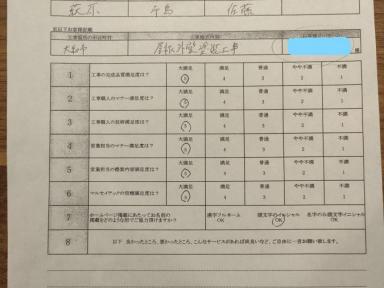 荻原 中島 佐藤
工事箇所の市区町村
大和市 屋根外壁塗装工事 ( 様
大満足 満足 普通 やや不満 不満
1 工事の完成品質満足度は? 5 4 3 2 1
大満足 満足 普通 やや不満 不満
2 工事職人のマナー満足度は? 5 4 3 2 1
大満足 満足 普通 やや不満 不満
3 工事職人の技術満足度は? 5 4 3 2 1
大満足 満足 普通 やや不満 不満
4 営業担当のマナー満足度は? 5 4 3 2 1
大満足 満足 普通 やや不満 不満
5 営業担当の提案内容満足度は? 5 4 3 2 1
大満足 満足 普通 やや不満 不満
6 マルセイテックの信頼満足度は? 5 4 3 2 1
7 ホームページ掲載にあたってお名前の 漢字フルネーム 頭文字のイニシャル 名字のみ頭文字イニシャル
掲載をどのような形でご協力頂けますか? OK OK OK
8 以下 良かったところ、悪かったところ、こんなサービスがあれば尚良いなど、ご自由に一言お願い致します。